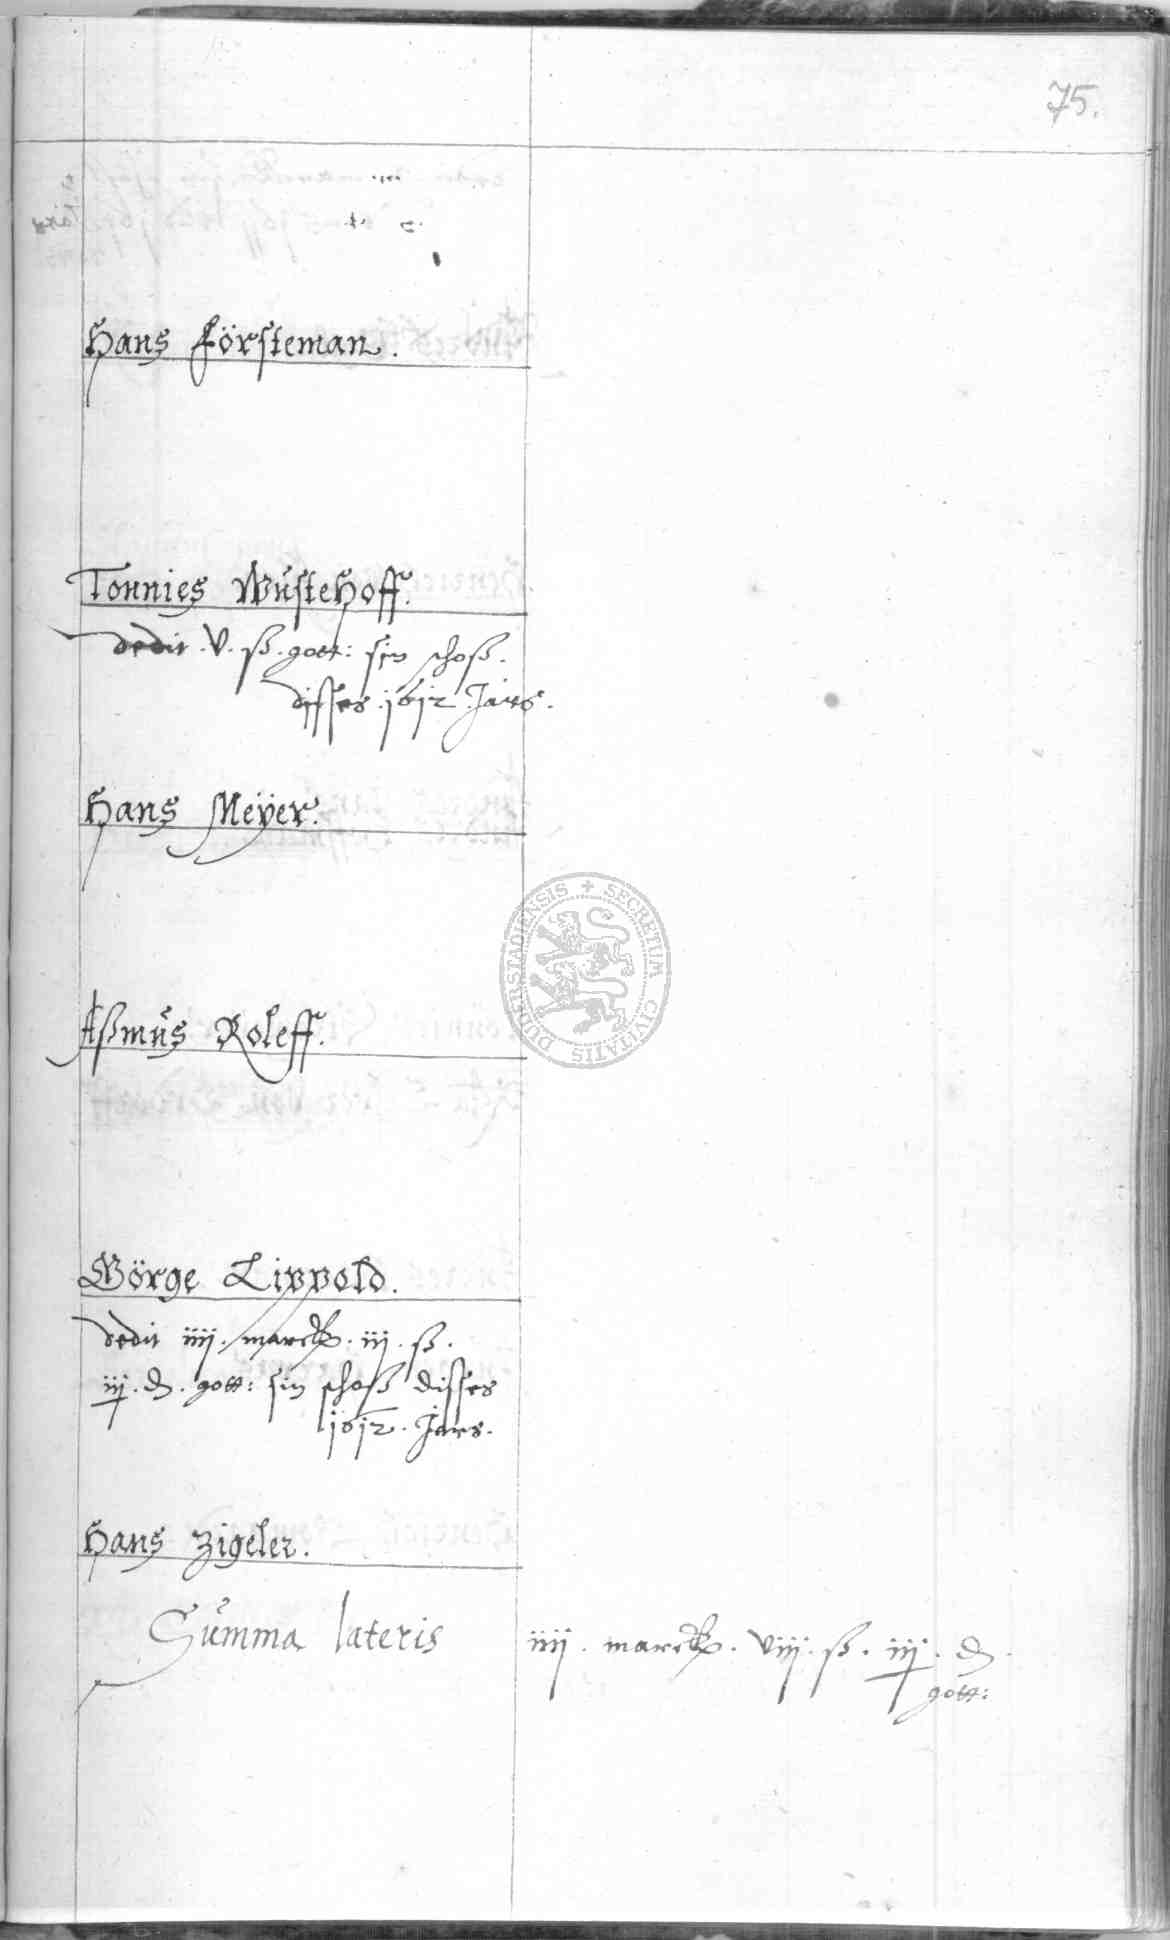 75.
Hans Försteman.
Tonnies Wüstehoff.
dedit .v. ß. gott: sin schoß.
disses .1612. Jars.
Hans Meÿer.
Aßmus Roleff.
Görge Lippold.
dedit iiij. marck. iij. ß.
iij. d. gott: sin schoß disses
1612. Jars.
Hans Zigeler.
Summa lateris iiij. marck. viij. ß. iij. d.
gott:
SECRETUM CIVITATIS DUDERSTADIENSIS